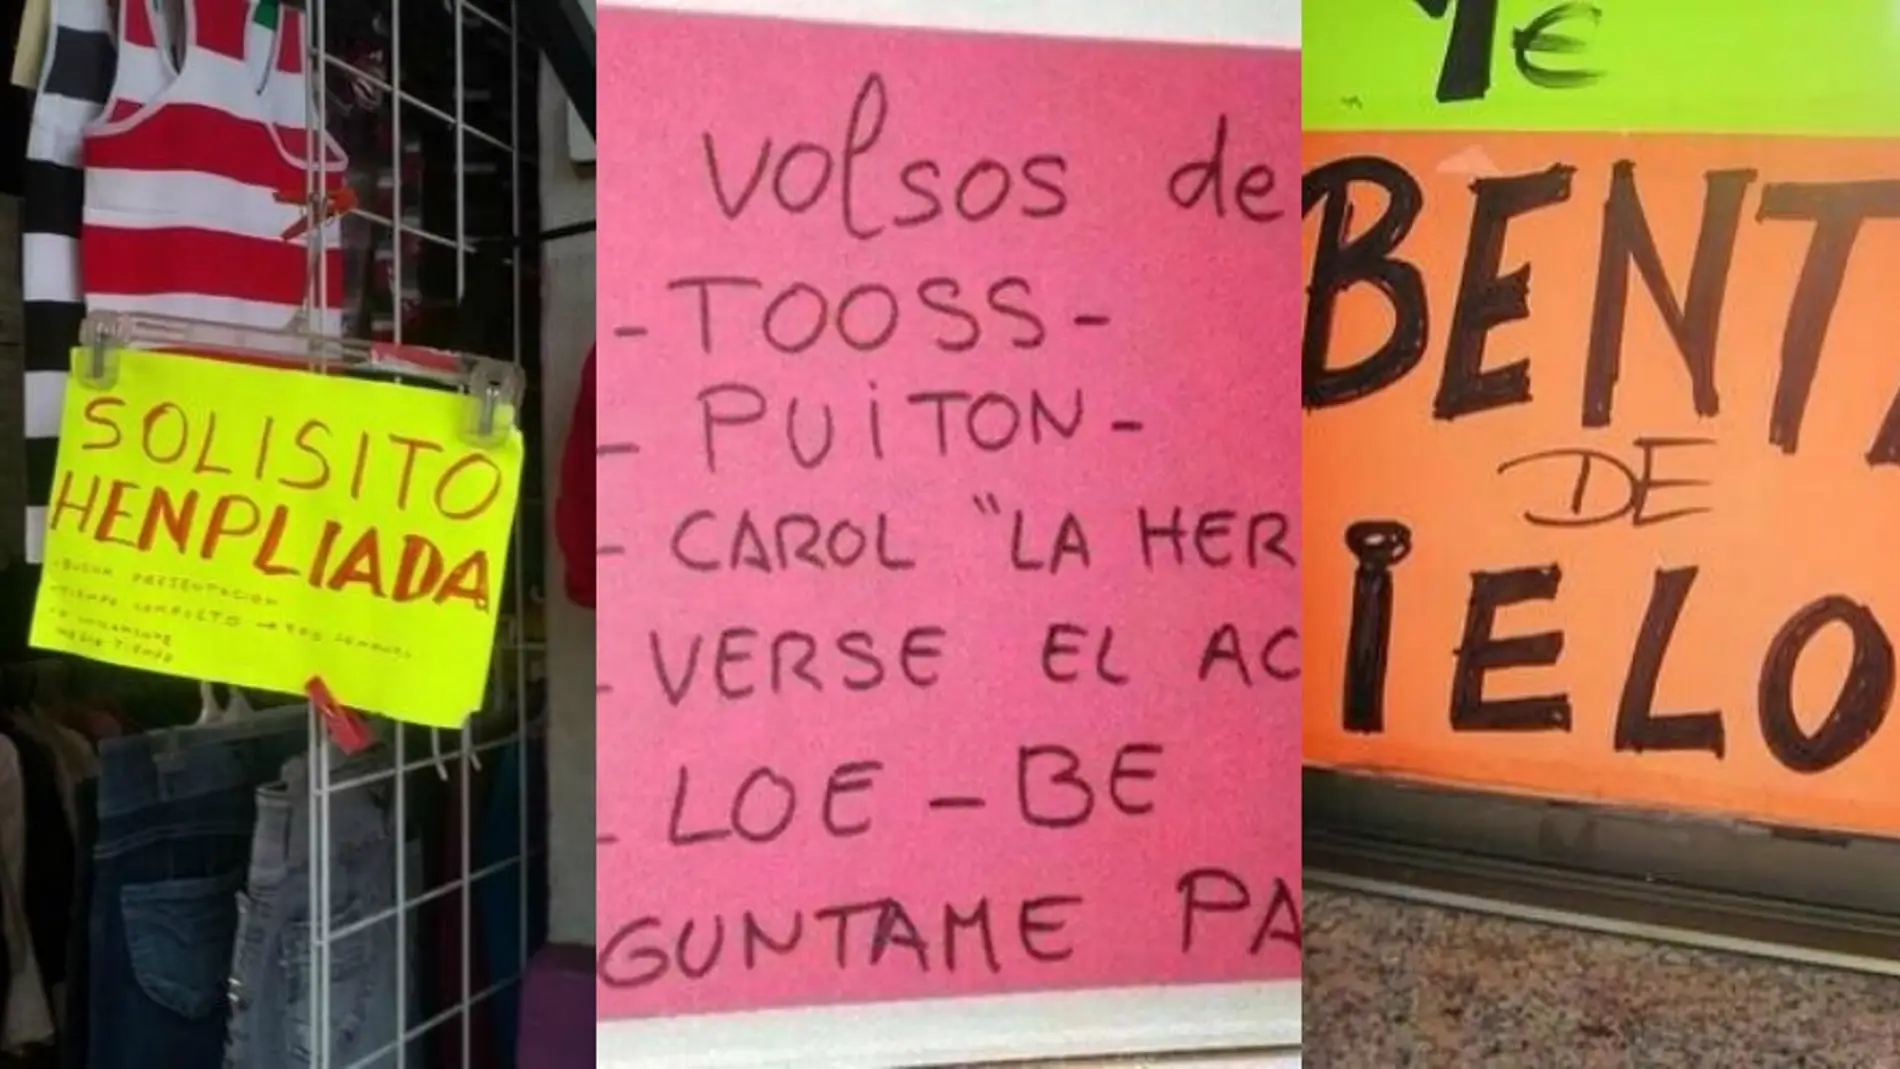 SOLISITO
HENPLIADA
-BUENA PRESENTACION
-TIEMPO COMPLETO
MEDIO TIEMPO
Volsos de
-TOOSS-
- PUiTON-
- CAROL "LA HER
- VERSE EL AC
- LOE-BE
GUNTAME PA
1€
BENTA
DE
iELO